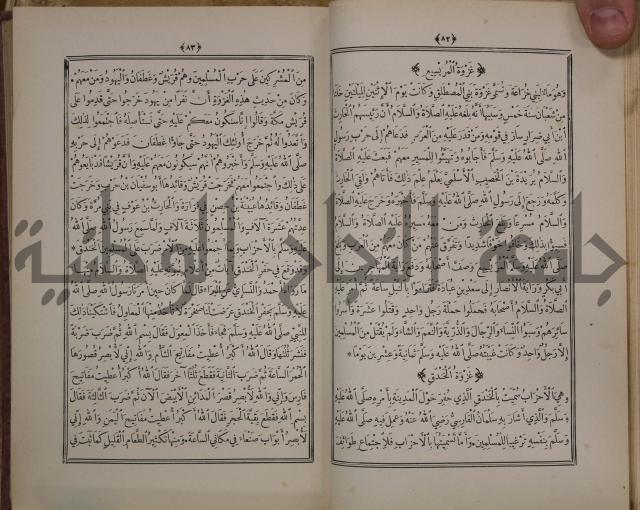 ﴿٨٢﴾
﴿غزوة المريسيع﴾
وهو ماء لبني خزاعة وتسمى غزوة بني المصطلق وكانت يوم الاثنين لليلتين خلتا
من شعبان سنة خمس وسببها أنه بلغه عليه الصلاة والسلام أن رئيسهم الحارث
ابن أبي ضرار سار في قومه ومن قدر عليه من العرب فدعاهم إلى حرب رسول
الله صلى الله عليه وسلم فأجابوه وتهيئوا للمسير معهم فبعث عليه الصلاة
والسلام بريدة بن الحصيب الأسلمي يعلم علم ذلك فأتاهم ولقي الحارث
وكلمه ورجع إلى رسول الله صلى الله عليه وسلم فأخبره وخرج عليه الصلاة
والسلام مسرعا وبلغ الحارث ومن معه مسيره عليه الصلاة والسلام
فسيء بذلك وخافوا خوفا شديدا وتفرق عنهم من كان معهم من العرب
صلى الله عليه وسلم المريسيع وصف أصحابه ودفع راية المهاجرين إلى
أبي بكر وراية الأنصار إلى سعد بن عبادة فتراموا بالنبل ساعة ثم أمر عليه
الصلاة والسلام أصحابه فحملوا حملة رجل واحد وقتلوا عشرة وأسروا
سائرهم وسبوا النساء والرجال والذرية والنعم والشاء ولم يقتل من المسلمين
إلا رجل واحد وكانت غيبته صلى الله عليه وسلم ثمانية وعشرين يوما *
﴿غزوة الخندق﴾
وهي الأحزاب سميت بالخندق الذي حفر حول المدينة بأمره صلى الله عليه
وسلم والذي أشار به سلمان الفارسي رضي الله عنه وعمل فيه صلى الله عليه
وسلم بنفسه ترغيبا للمسلمين وأما تسميتها بالأحزاب فلاجتماع طوائف
﴿٨٣﴾
من المشركين على حرب المسلمين وهم قريش وغطفان واليهود ومن معهم *
وكان من حديث هذه الغزوة أن نفرا من يهود خرجوا حتى قدموا على
قريش مكة وقالوا إنا سنكون معكم عليه حتى نستأصله فاجتمعوا لذلك
واتعدوا له ثم خرج أولئك اليهود حتى جاؤا غطفان فدعوهم إلى حربه
صلى الله عليه وسلم وأخبروهم أنهم سيكونون معهم عليه وأن قريشا قد بايعوهم
على ذلك واجتمعوا معهم فخرجت قريش وقائدها أبو سفيان بن حرب وخرجت
غطفان وقائدها عيينة بن حصن في فزارة والحارث بن عوف في بني مرة وكان
عدتهم عشرة آلاف والمسلمون ثلاثة آلاف ولما سمع رسول الله صلى الله
عليه وسلم بالأحزاب وبما أجمعوا عليه من الأمر ضرب على المسلمين الخندق *
وقد وقع في حفر الخندق آيات من أعلام نبوته عليه الصلاة والسلام منها
ما رواه أحمد والنسائي عن البراء قال لما كان حين أمرنا رسول الله صلى الله
عليه وسلم بحفر الخندق عرضت لنا صخرة لا تأخذ فيها المعاول فاشتكينا ذلك
للنبي صلى الله عليه وسلم فجاء فأخذ المعول فقال بسم الله ثم ضرب ضربة
فنشر ثلثها وقال الله أكبر أعطيت مفاتيح الشأم والله إني لأبصر قصورها
الحمر الساعة ثم ضرب الثانية فقطع ثلثا آخر فقال الله أكبر أعطيت مفاتيح
فارس وإني والله لأبصر قصر المدائن الأبيض الآن ثم ضرب الثالثة فقال
بسم الله فقطع بقية الحجر فقال الله أكبر أعطيت مفاتيح اليمن والله إني
لأبصر أبواب صنعاء في مكاني الساعة * ومنها تكثير الطعام القليل كما ثبت في
جامعة النجاح الوطنية